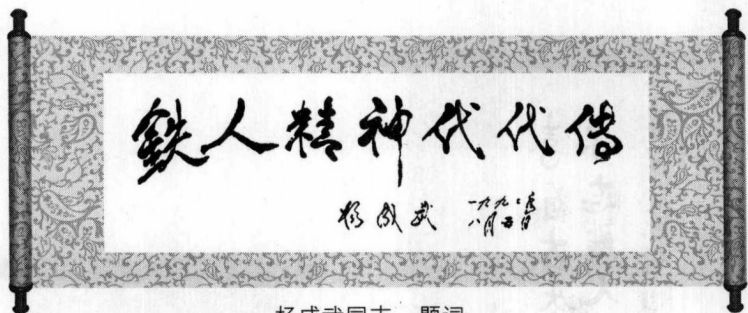 鐵人精神代代傳
杨成武 一九九〇年
八月五日
杨成武同志 题词